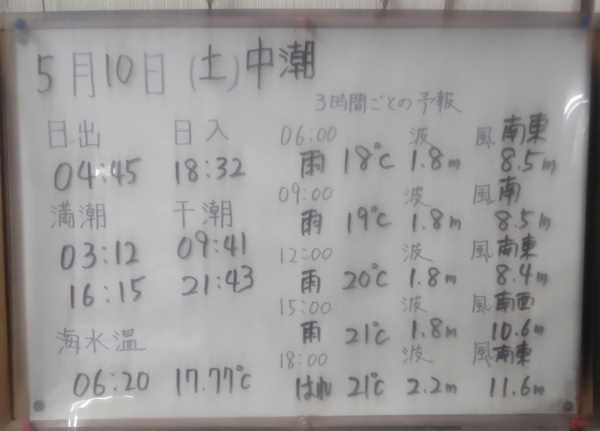 5月10日(土)中潮
3時間ごとの予報
日出 日入
04:45 18:32
満潮 干潮
03:12 09:41
16:15 21:43
海水温
06:20 17.77℃
06:00 波 風 南東
雨 18℃ 1.8m 8.5m
09:00 波 風 南
雨 19℃ 1.8m 8.5m
12:00 波 風 南東
雨 20℃ 1.8m 8.4m
15:00 波 風 南西
雨 21℃ 1.8m 10.6m
18:00 波 風 南東
はれ 21℃ 2.2m 11.6m